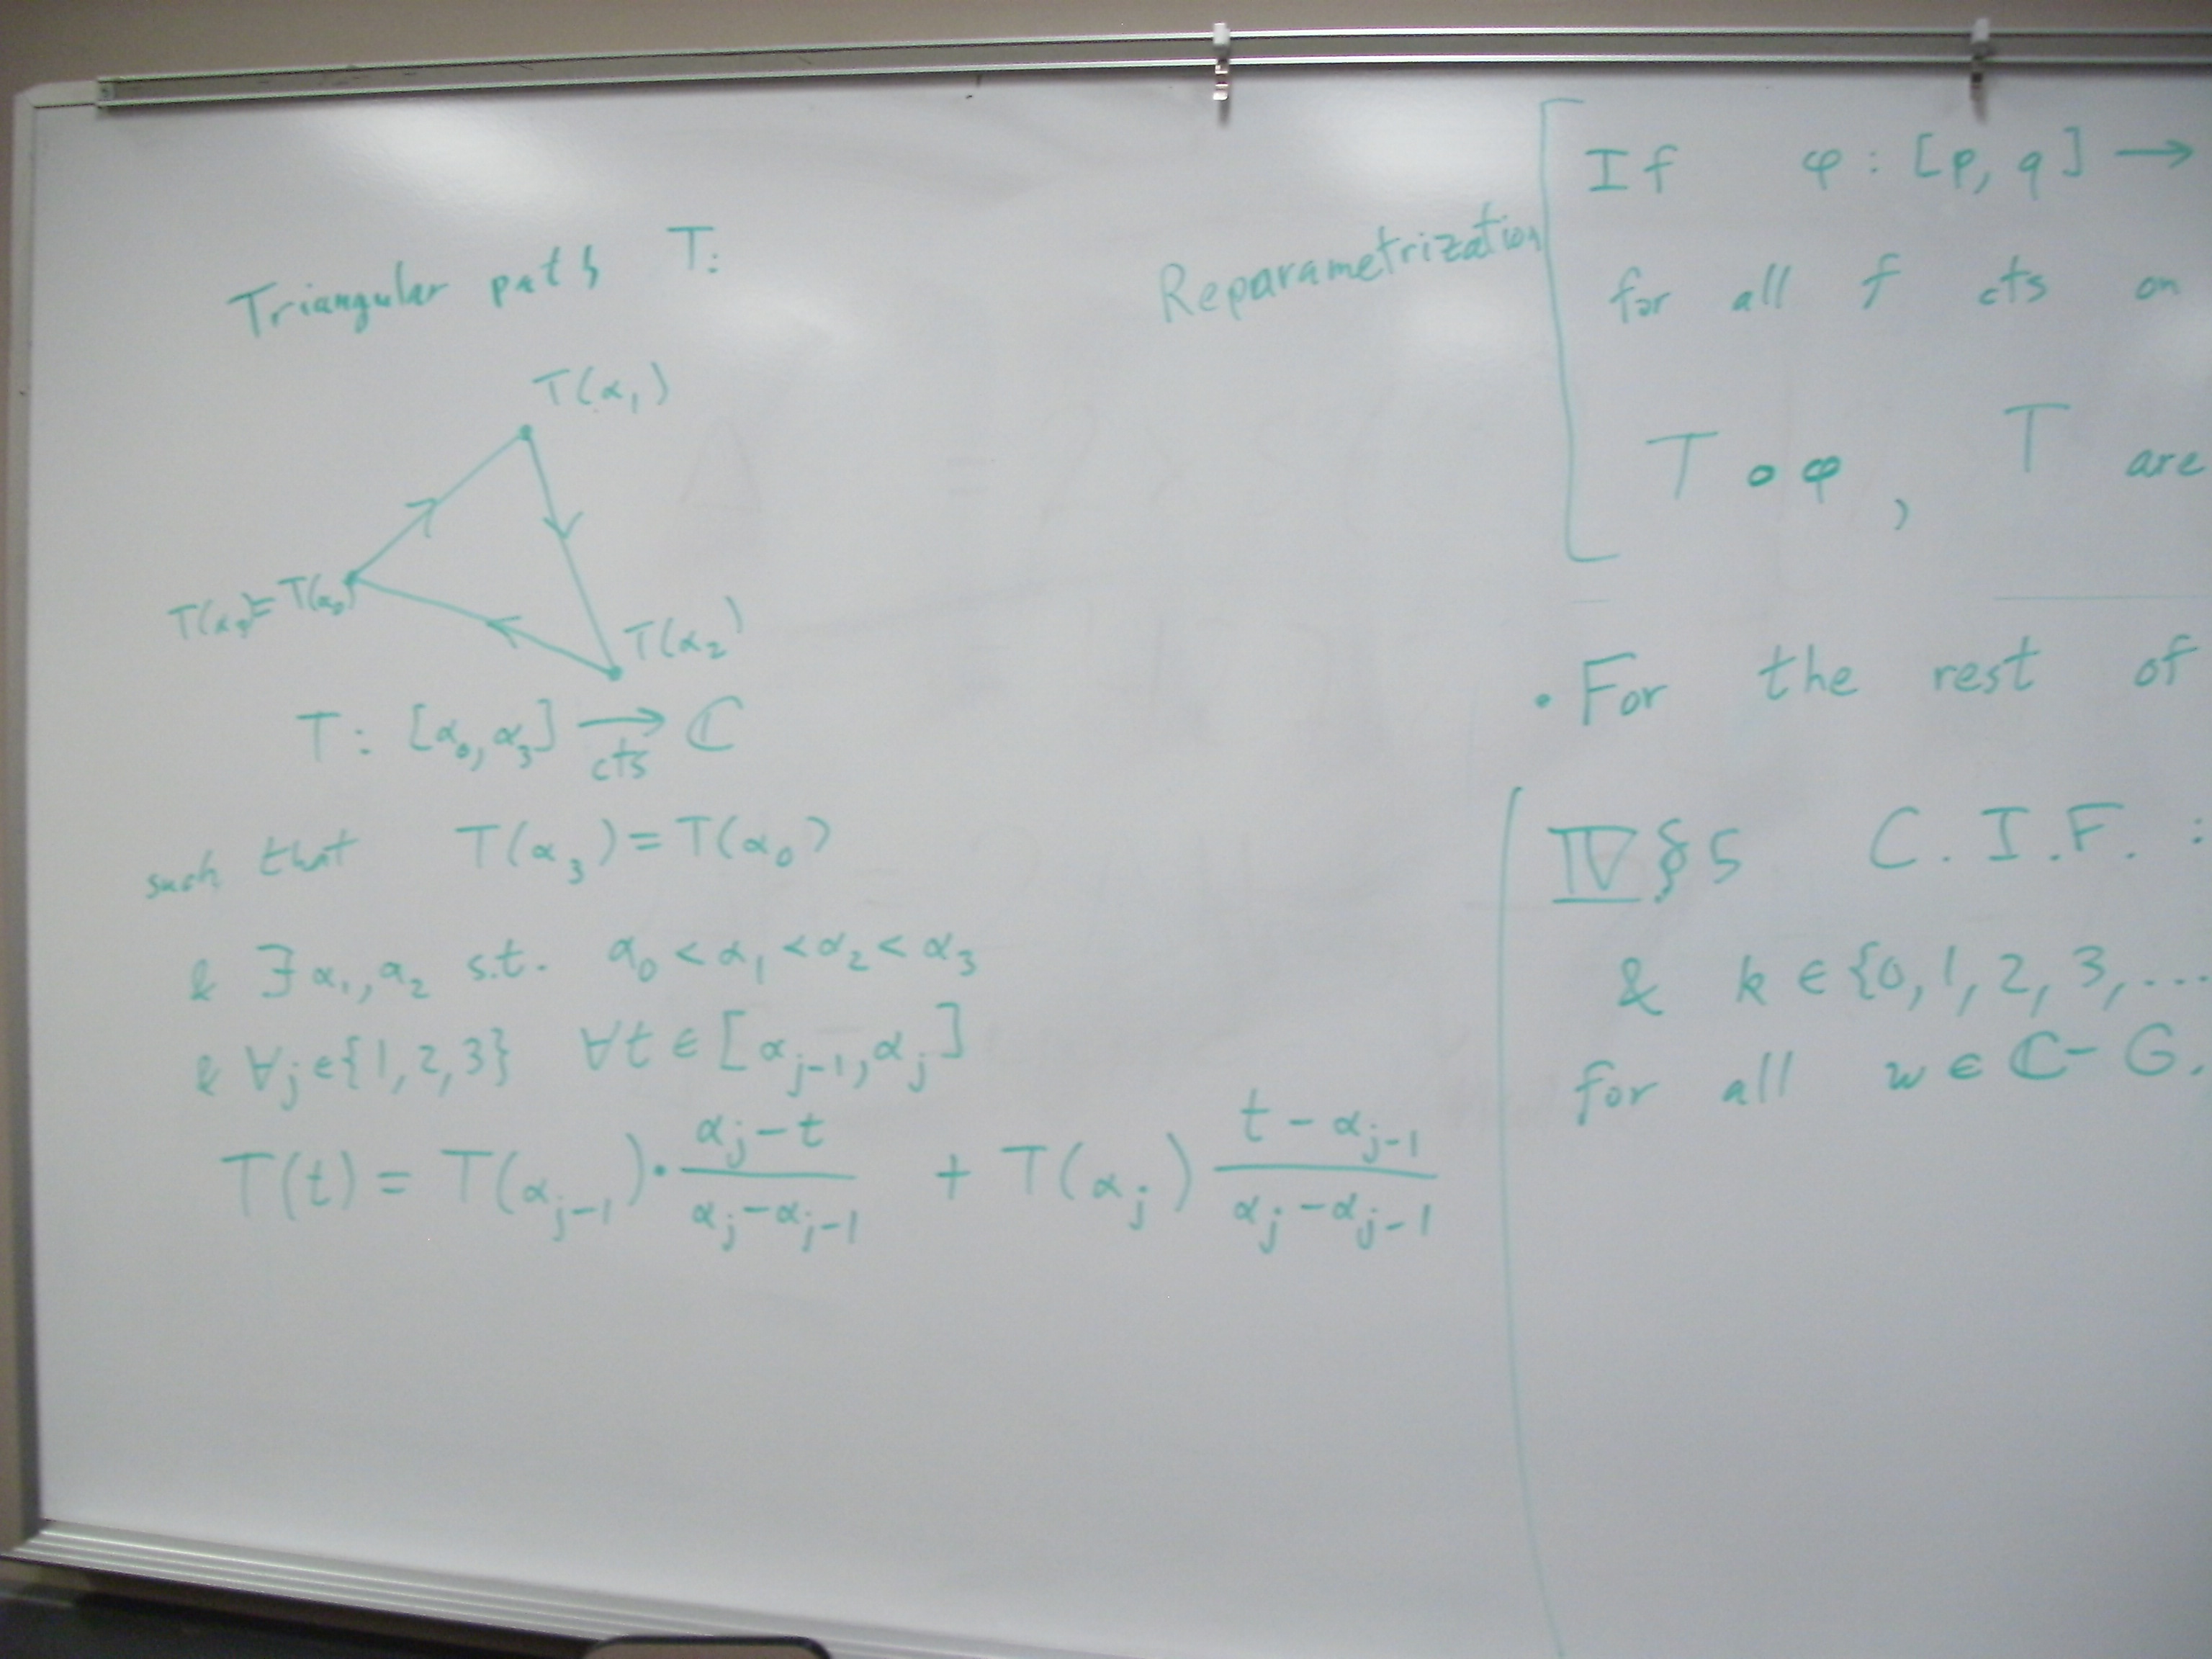 Triangular path T:
T(α₁)
T(α₃)=T(α₀)
T(α₂)
T: [α₀, α₃] ⟶ ℂ
cts
such that T(α₃)=T(α₀)
& ∃ α₁, α₂ s.t. α₀ < α₁ < α₂ < α₃
& ∀j∈{1,2,3} ∀t ∈ [α_{j-1}, α_j]
T(t) = T(α_{j-1}) · (α_j - t)/(α_j - α_{j-1}) + T(α_j) (t - α_{j-1})/(α_j - α_{j-1})
Reparametrization
If φ : [p, q] →
for all f cts on
T ∘ φ , T are
• For the rest of
IV § 5 C.I.F. :
& k ∈ {0, 1, 2, 3, ...
for all w ∈ ℂ - G,